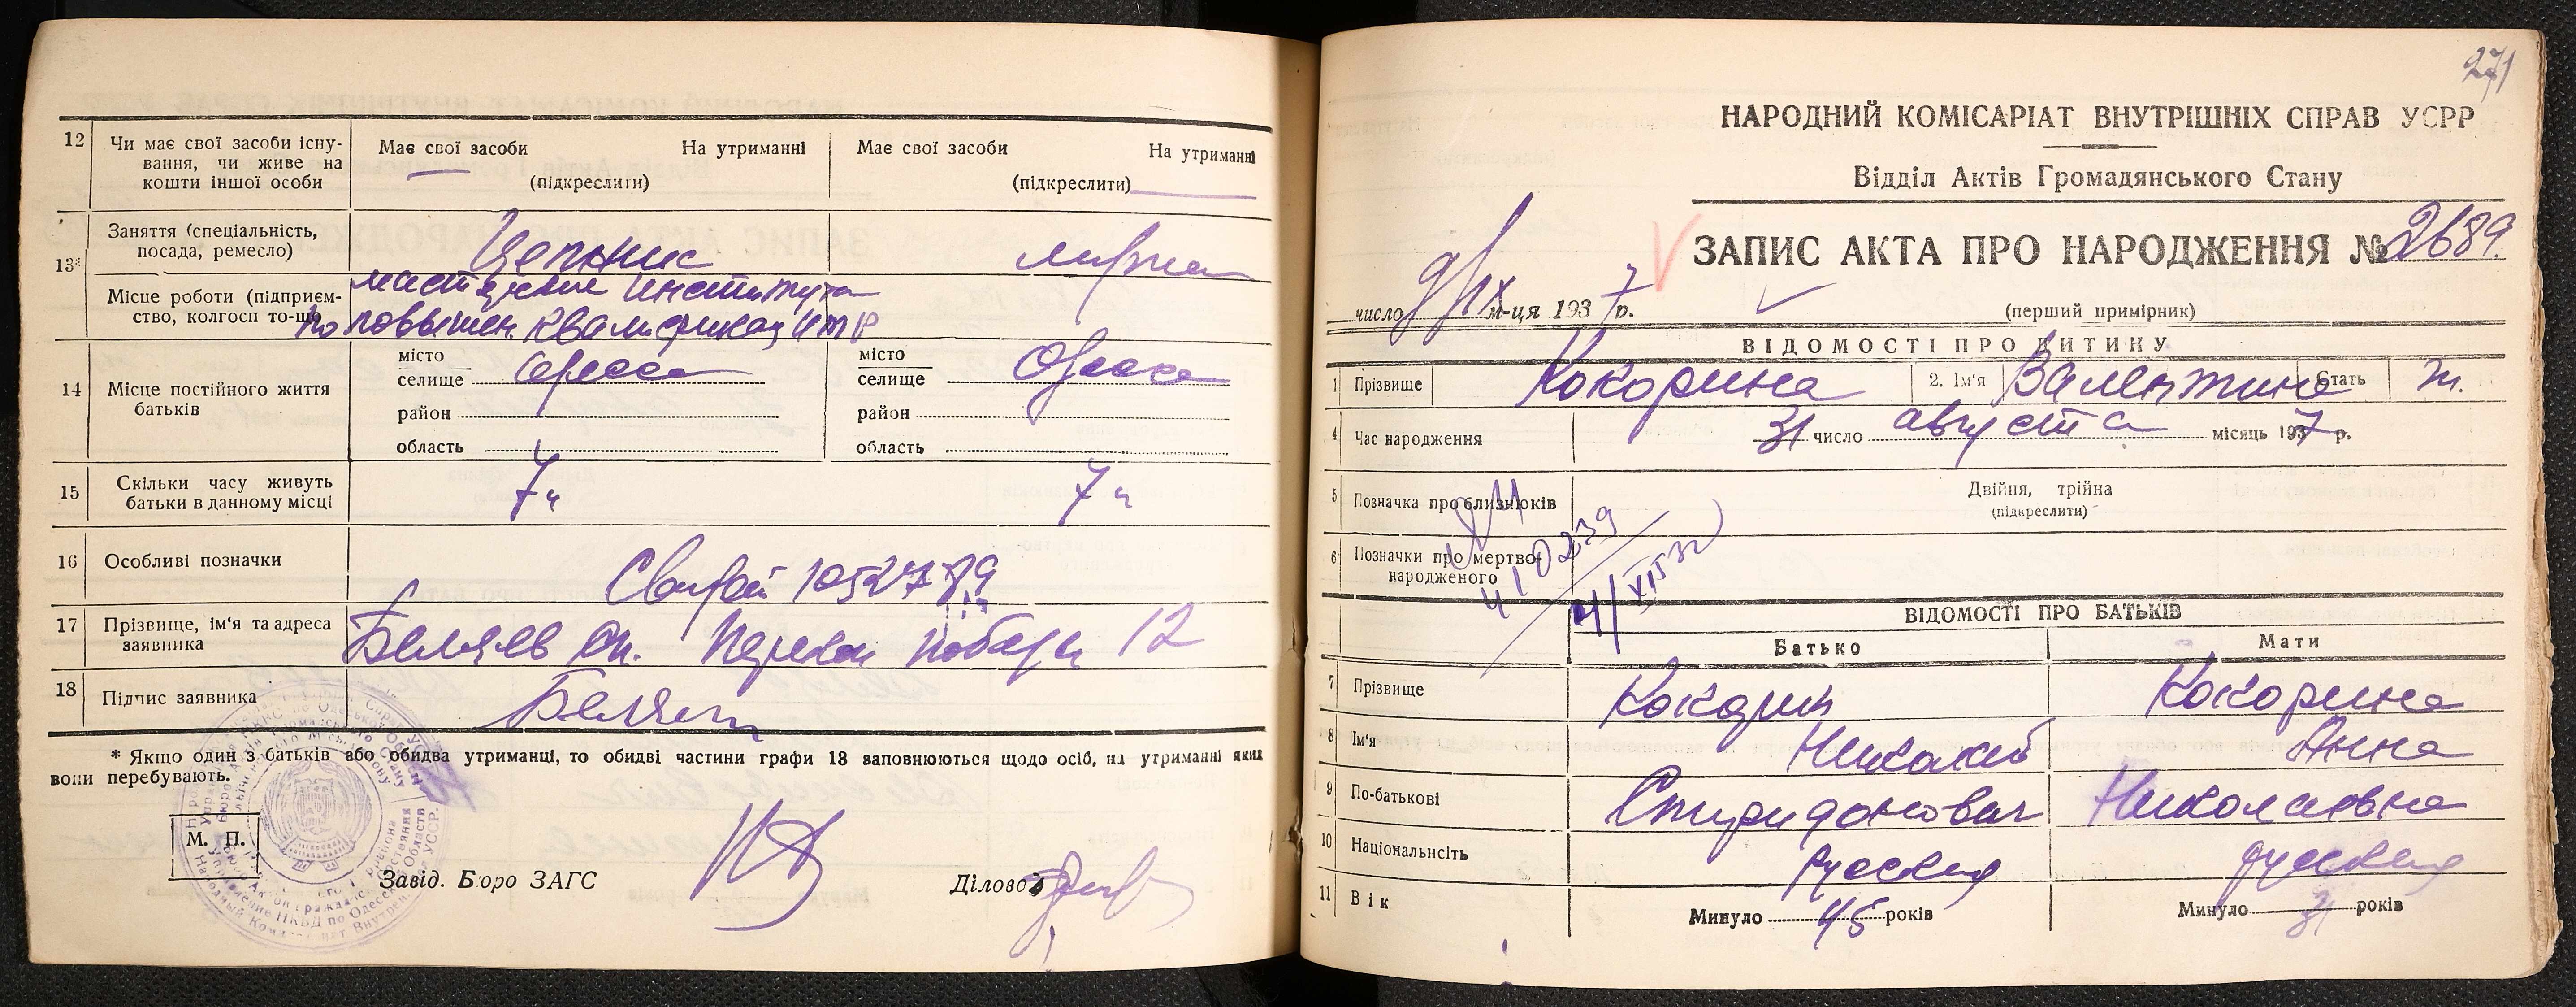 12 Чи має свої засоби існу-
вання, чи живе на
кошти іншої особи
Має свої засоби На утриманні
(підкреслити)
Має свої засоби На утриманні
(підкреслити)
13* Заняття (спеціальність,
посада, ремесло)
Місце роботи (підприєм-
ство, колгосп то-що
института
по повышен. квалификац ИТР
14 Місце постійного життя
батьків
місто
селище Одесса
район
область
місто
селище Одесса
район
область
15 Скільки часу живуть
батьки в данному місці
7 7
16 Особливі позначки
1052789
17 Прізвище, ім'я та адреса
заявника
Беляев 12
18 Підпис заявника
* Якщо один з батьків або обидва утриманці, то обидві частини графи 13 заповнюються щодо осіб, на утриманні яких
вони перебувають.
М. П.
Завід. Бюро ЗАГС Діловод
271
НАРОДНИЙ КОМІСАРІАТ ВНУТРІШНІХ СПРАВ УСРР
Відділ Актів Громадянського Стану
ЗАПИС АКТА ПРО НАРОДЖЕННЯ № 2689.
число 9/IX м-ця 1937 р.
(перший примірник)
ВІДОМОСТІ ПРО ДИТИНУ
1 Прізвище Кокорина 2. Ім'я Валентина Стать ж.
4 Час народження 31 число августа місяць 1937 р.
5 Позначка про близнюків
Двійня, трійна
(підкреслити)
6 Позначки про мертво-
народженого
410239
ВІДОМОСТІ ПРО БАТЬКІВ
Батько Мати
7 Прізвище Кокорин Кокорина
8 Ім'я Николай Анна
9 По-батькові Спиридонович Николаевна
10 Національність русский русская
11 Вік Минуло 45 років Минуло 31 років